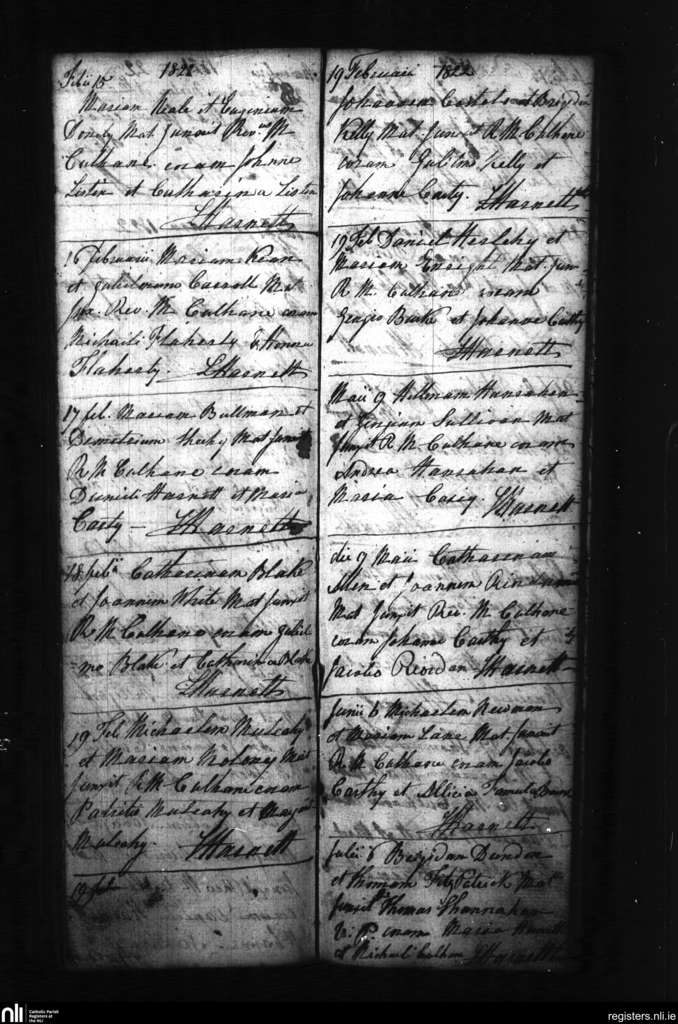 Febii 15 1822
Mariam Neale et Eugenium
Donely Mat. Junxit Revd. M
Culhane coram Johanne
Liston et Catharina Liston
JHarnett
16 Februarii Mariam Kean
et Gulielmum Carroll Mat.
Jux. Rev. M. Culhane coram
Michaeli Flaherty & Honora
Flaherty. JHarnett
17 feb. Mariam Bullman et
Demetrium Sheehy Mat Junxit
R M Culhane coram
Danieli Harnett et Maria
Carty — JHarnett
18 feb. Catharinam Blake
et Joannem White Mat Junxit
R M Culhane coram Guliel
=mo Blake et Catharina Blake
JHarnett
19 Feb Michaelem Mulcahy
et Mariam Molony Mat
Junxit R M Culhane coram
Patritio Mulcahy et
Mulcahy. JHarnett
19 feb
19 Februarii 1822
Johannem et Brigidam
Kelly Mat. Junxit R M Culhane
coram Kelly et
Johanne Carty. JHarnett
19 Feb Daniel Herlehy et
Mariam Enright Mat. Jun-
R M. Culhane coram
Burke et Johanne Carthy
JHarnett
Maii 9 Hanrahan
et Sullivan Mat
Junxit R M Culhane coram
Andrea Hanrahan et
Maria Casey. JHarnett
die 9 Maii Catharinam
et Joannem
Mat Junxit Rev. M Culhane
coram Johanne Carthy et
Jacobo Reordan JHarnett
Junii 6 Michaelem Newman
et Mariam Lane Mat Junxit
R M Culhane coram Jacobo
Carthy et Allicia
JHarnett
Julii 6 Brigidam Dundon
et Thomam FitzPatrick Mat.
Junxit Thomas Shannahan
coram Maria
et Michaeli Culhane JHarnett
nli Catholic Parish
Registers at
the NLI
registers.nli.ie